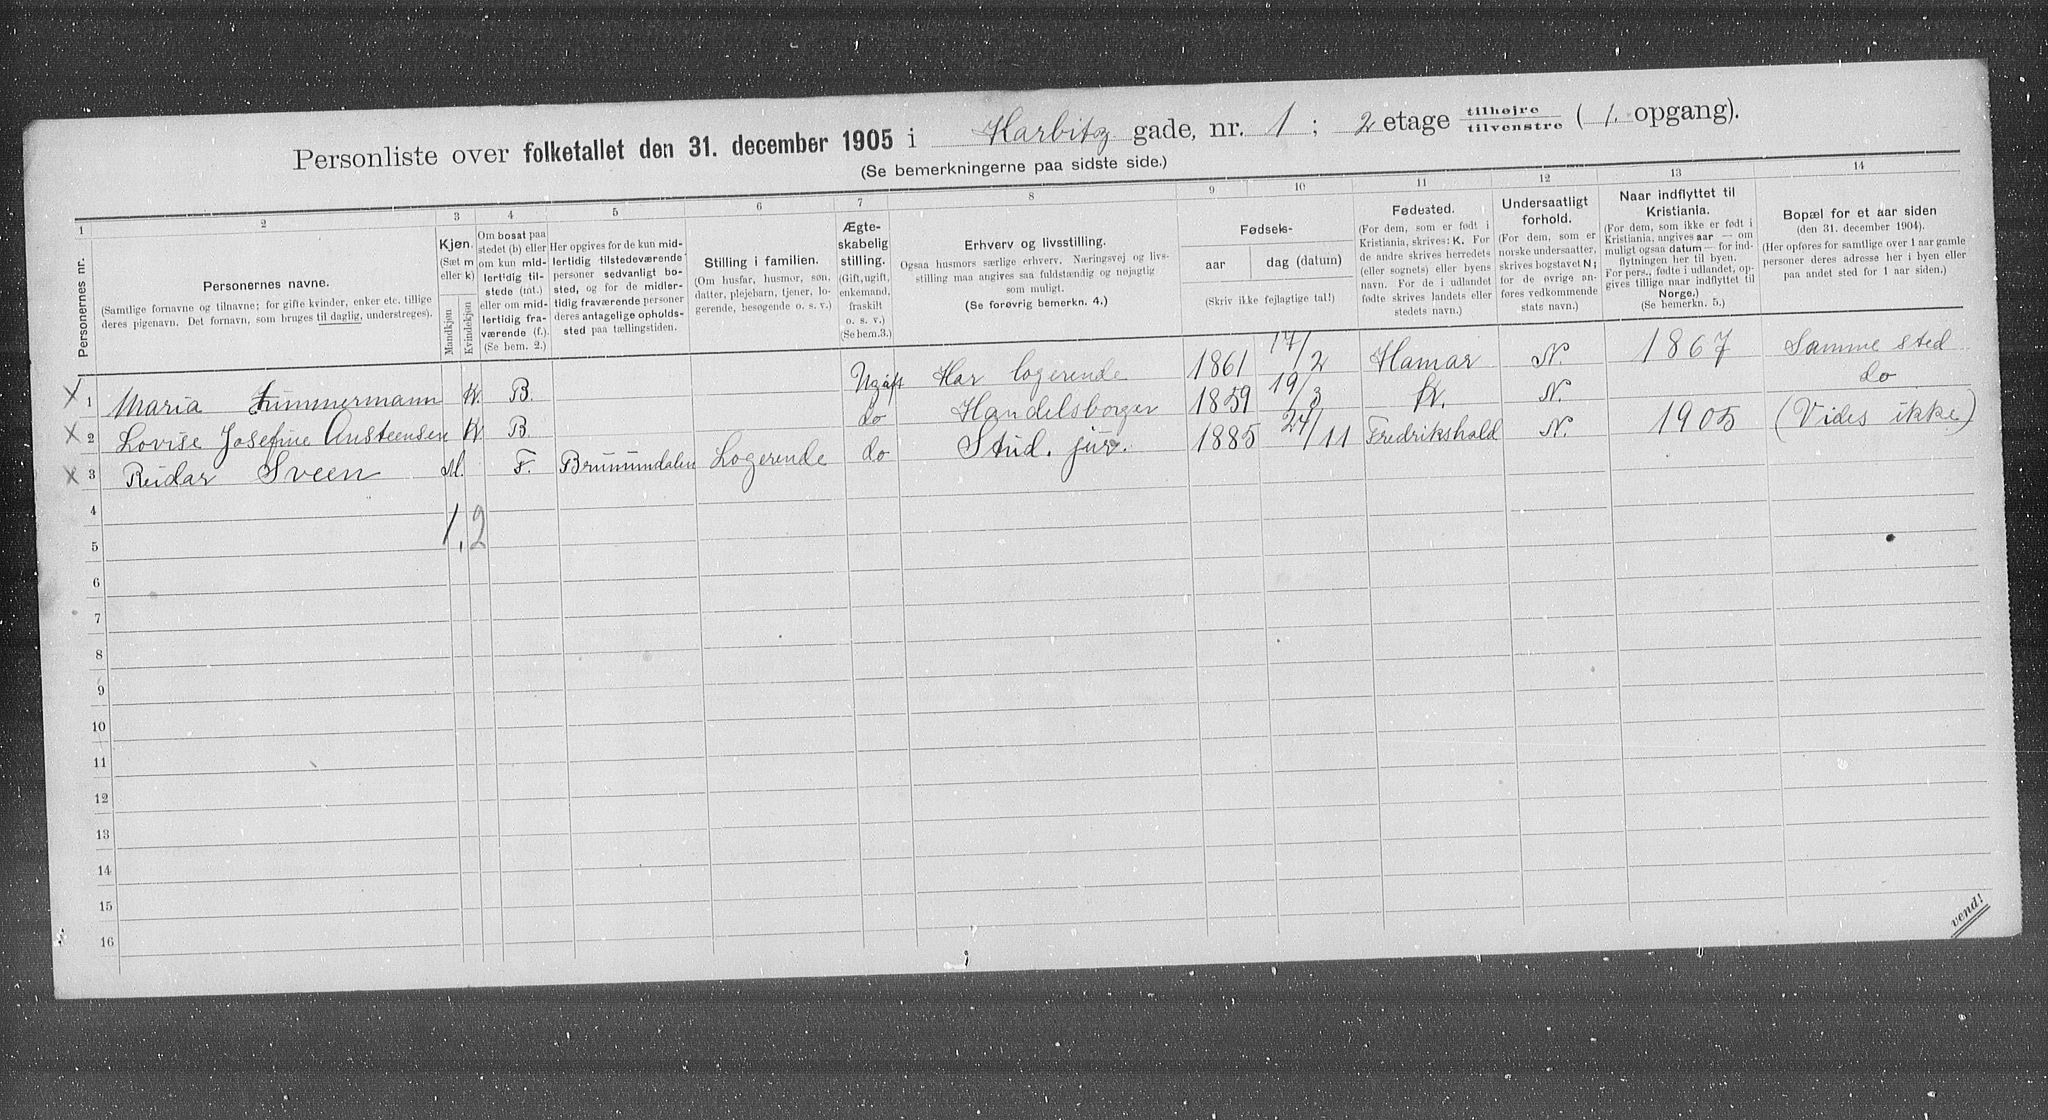 Personliste over folketallet den 31. december 1905 i Karbitz gade, nr. 1; 2 etage tilhøjre tilvenstre (1. opgang).
(Se bemerkningerne paa sidste side.)
1 2 3 4 5 6 7 8 9 10 11 12 13 14
Personernes nr.
Personernes navne.
(Samtlige fornavne og tilnavne; for gifte kvinder, enker etc. tillige
deres pigenavn. Det fornavn, som bruges til daglig, understreges).
Kjøn.
(Sæt m
eller k)
Mandkjøn
Kvindekjøn
Om bosat paa
stedet (b) eller
om kun mid-
lertidig til-
stede (mt.)
eller om mid-
lertidig fra-
værende (f.).
(Se bem. 2.)
Her opgives for de kun mid-
lertidig tilstedeværende
personer sedvanligt bo-
sted, og for de midler-
tidig fraværende personer
deres antagelige opholds-
sted paa tællingstiden.
Stilling i familien.
(Om husfar, husmor, søn,
datter, plejebarn, tjener, lo-
gerende, besøgende o. s. v.)
Ægte-
skabelig
stilling.
(Gift, ugift,
enkemand,
fraskilt
o. s. v.)
(Se bem. 3.)
Erhverv og livsstilling.
Ogsaa husmors særlige erhverv. Næringsvej og livs-
stilling maa angives saa fuldstændig og nøjagtig
som muligt.
(Se forøvrig bemerkn. 4.)
Fødsels-
aar
dag (datum)
(Skriv ikke fejlagtige tal!)
Fødested.
(For dem, som er født i
Kristiania, skrives: K. For
de andre skrives herredets
(eller sognets) eller byens
navn. For de i udlandet
fødte skrives landets eller
stedets navn.)
Undersaatligt
forhold.
(For dem, som er
norske undersaatter,
skrives bogstavet N;
for de øvrige an-
føres vedkommende
stats navn.)
Naar indflyttet til
Kristiania.
(For dem, som ikke er født i
Kristiania, angives aar — om
muligt ogsaa datum — for ind-
flytningen her til byen.
For pers., fødte i udlandet, op-
gives tillige naar indflyttet til
Norge.)
(Se bemerkn. 5.)
Bopæl for et aar siden
(den 31. december 1904).
(Her opføres for samtlige over 1 aar gamle
personer deres adresse her i byen eller
paa andet sted for 1 aar siden.)
X 1 Maria K. B. Ugift Har logerende 1861 17/2 Hamar N. 1867 Samme sted
X 2 Lovise Josefine Austeensen K B do Handelsborger 1859 19/3 K. N. do
X 3 Reidar Sveen M. F. Brumunddalen Logerende do Stud. jur. 1885 24/11 Fredrikshald N. 1905 (Vides ikke)
4
1, 2
5
6
7
8
9
10
11
12
13
14
15
16
vend!